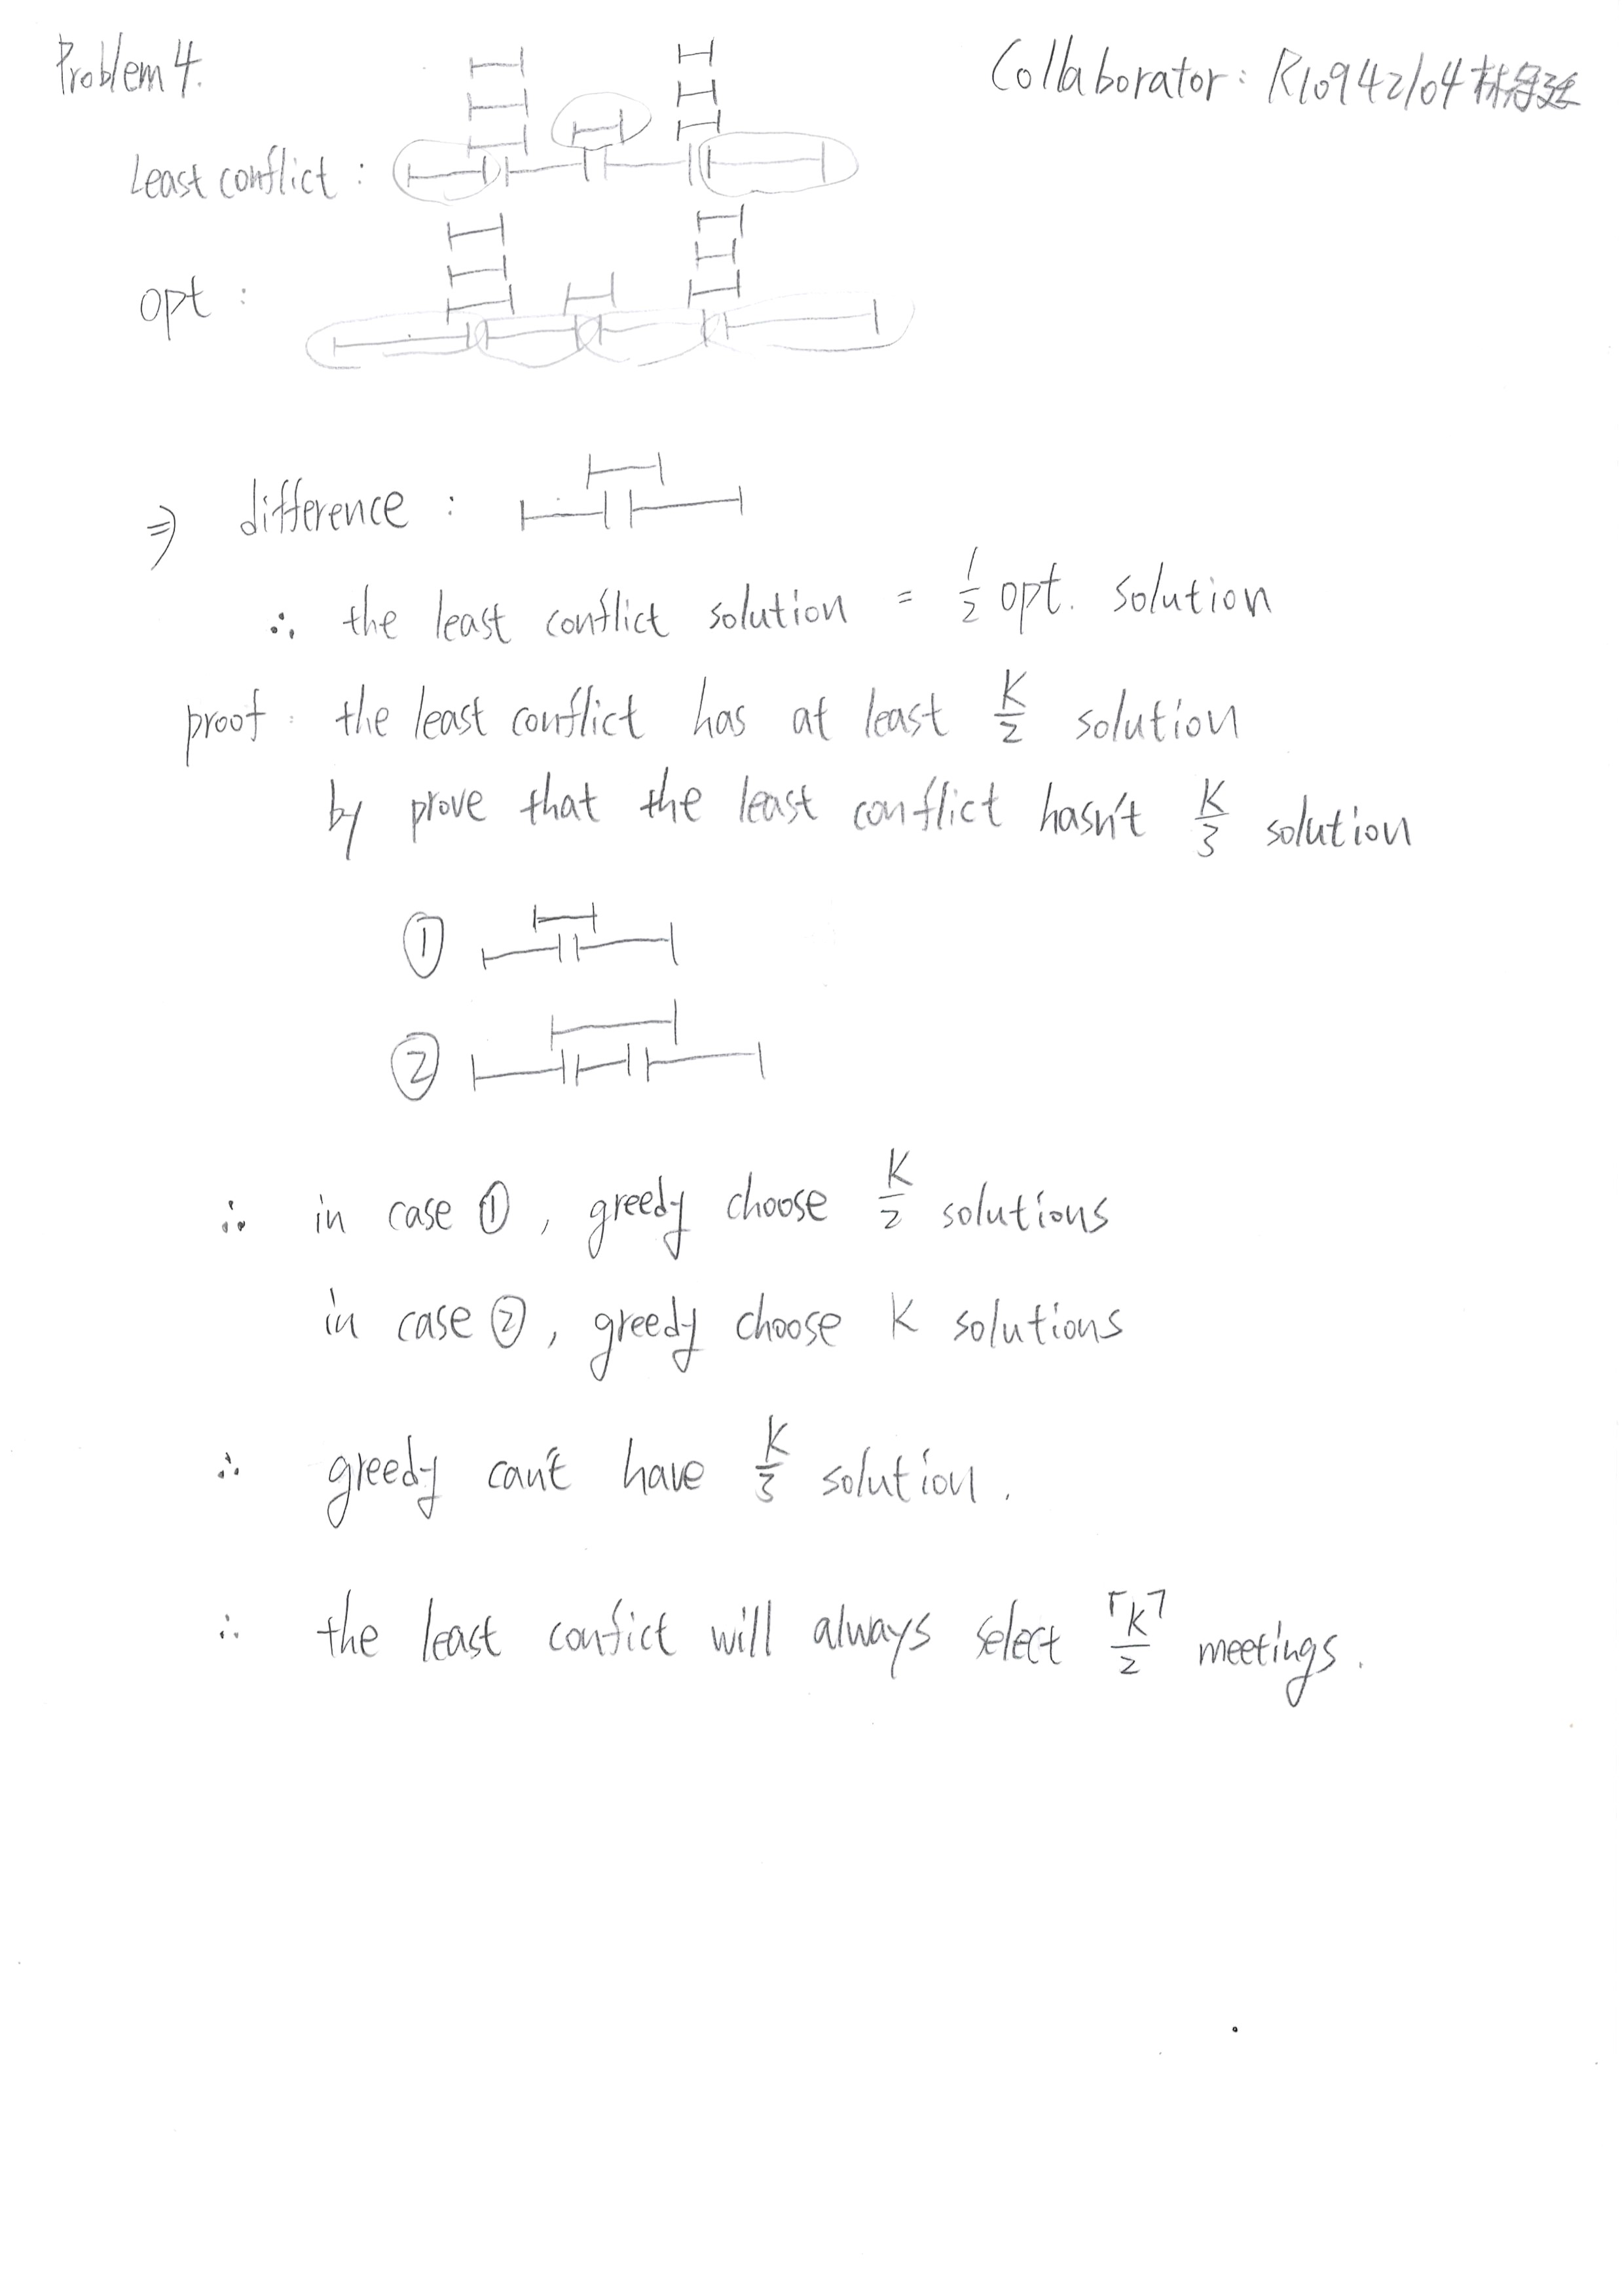 Problem 4.
Collaborator: R10942104 林
Least conflict :
opt :
⇒ difference :
∴ the least conflict solution = 1/2 opt. solution
proof : the least conflict has at least K/2 solution
by prove that the least conflict hasn't K/3 solution
①
②
∴ in case ①, greedy choose K/2 solutions
in case ②, greedy choose K solutions
∴ greedy can't have K/3 solution.
∴ the least confict will always select ⌈K⌉/2 meetings.